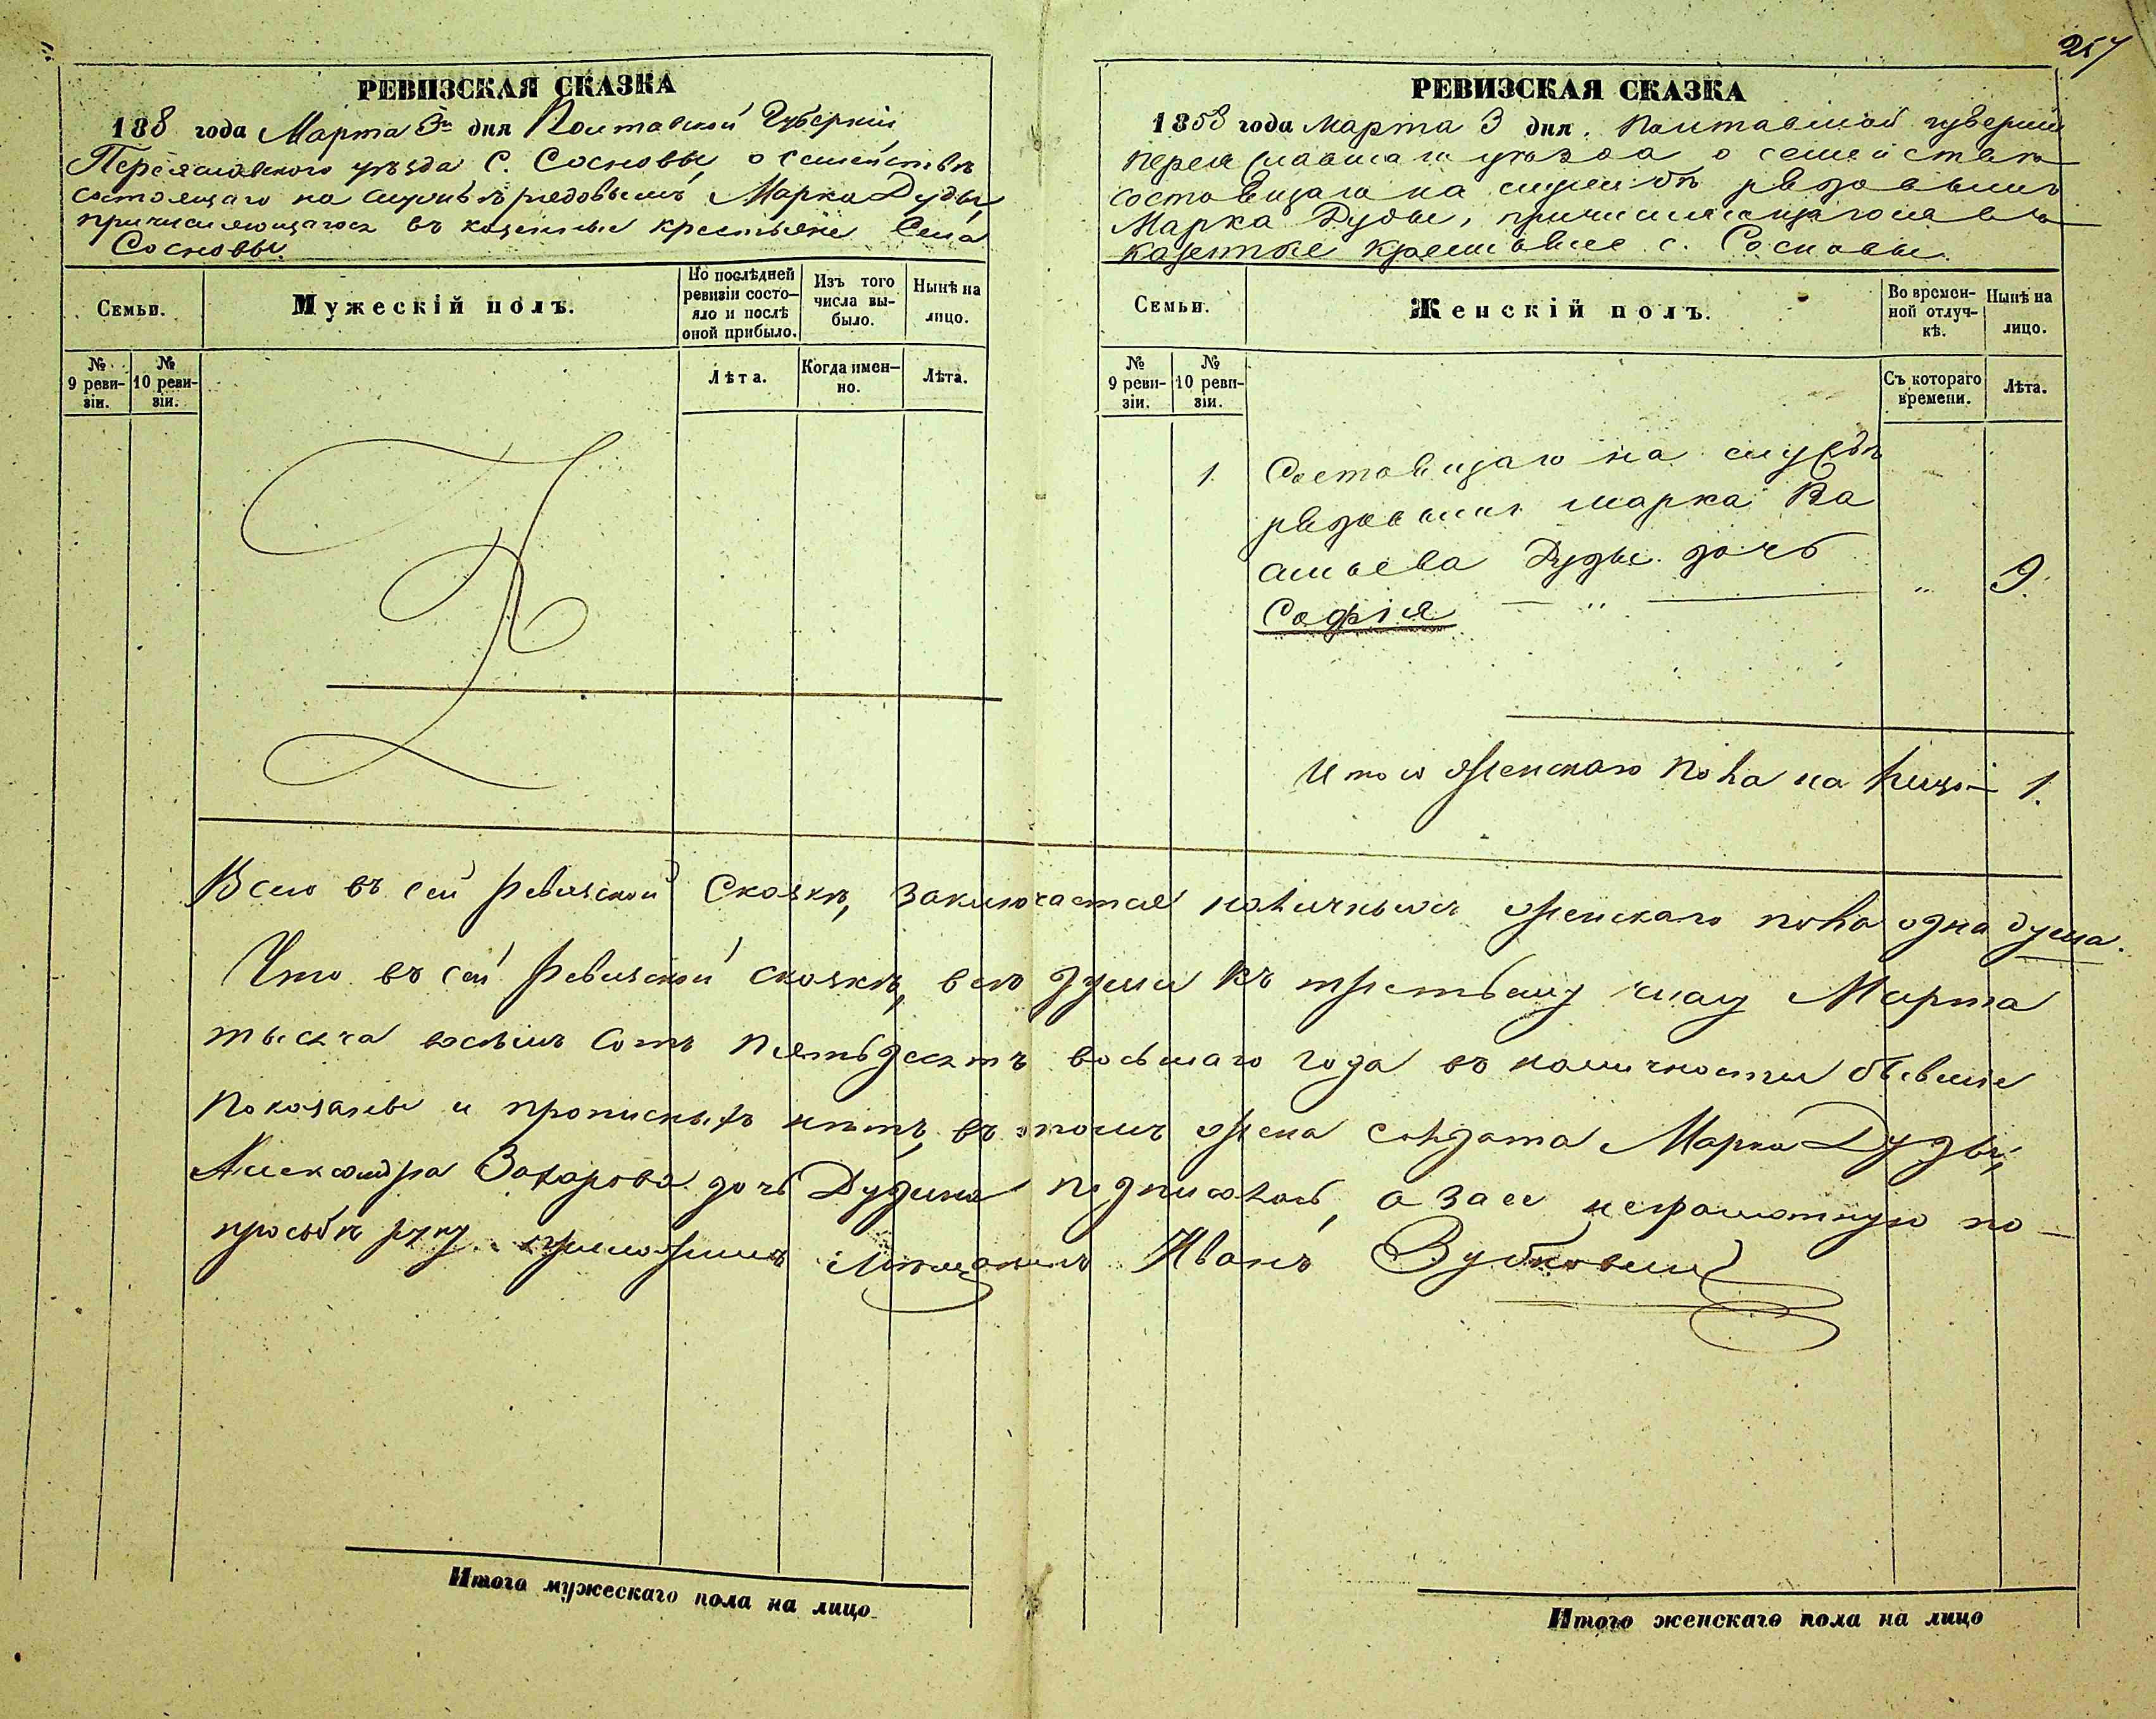 257
РЕВИЗСКАЯ СКАЗКА
188 года Марта 3го дня Полтавской Губерніи
Переяславского уѣзда С. Сосновы, о семействѣ
состоящаго на службѣ рядовымъ Марка Дуды
причисляющагося въ казенные крестьяне Села
Сосновы.
Семьи.
Мужескій полъ.
По послѣдней ревизіи состояло и послѣ оной прибыло.
Изъ того числа выбыло.
Нынѣ на лицо.
№ 9 ревизіи.
№ 10 ревизіи.
Лѣта.
Когда именно.
Лѣта.
РЕВИЗСКАЯ СКАЗКА
1858 года Марта 3 дня. Полтавской губерніи
Переяславскаго уѣзда о семействѣ
состовщаго на службѣ рядовымъ
Марка Дуды, причисляющагося въ
казенные крестьяне с. Сосновы.
Семьи.
Женскій полъ.
Во временной отлучкѣ.
Нынѣ на лицо.
№ 9 ревизіи.
№ 10 ревизіи.
Съ котораго времени.
Лѣта.
1. Состовщаго на службѣ
рядовымъ Марка Ва
сильева Дуды дочь
Софія — „ — „ 9.
Итого женскаго пола на лицо — 1.
Всего въ сей ревизской Сказкѣ, заключается наличныхъ женскаго пола одна душа.
Что въ сей ревизской сказкѣ, всѣ души къ третьему числу Марта
тысяча восемь сотъ пятьдесятъ восьмаго года въ наличности бывшіе
показаны и прописныхъ нѣтъ, въ томъ жена солдата Марка Дуды,
Александра Захарова дочь Дудина подписалась, а за ее неграмотную по
просьбѣ руку приложилъ Мѣщанинъ Иванъ
Итого мужескаго пола на лицо
Итого женскаго пола на лицо